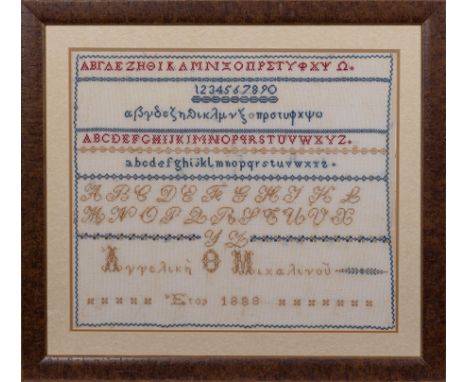 ΑΒΓΔΕΖΗΘΙΚΛΜΝΞΟΠΡΣΤΥΦΧΨΩ
1234567890
αβγδεζηθικλμνξοπρστυφχψω
ABCDEFGHIJKLMNOPQRSTUVWXYZ
abcdefghijklmnopqrstuvwxyz
ABCDEFGHIJKL
MNOPQRSTUVX
YZ
Αγγελικη Θ Μιχαλινου
Έτος 1888